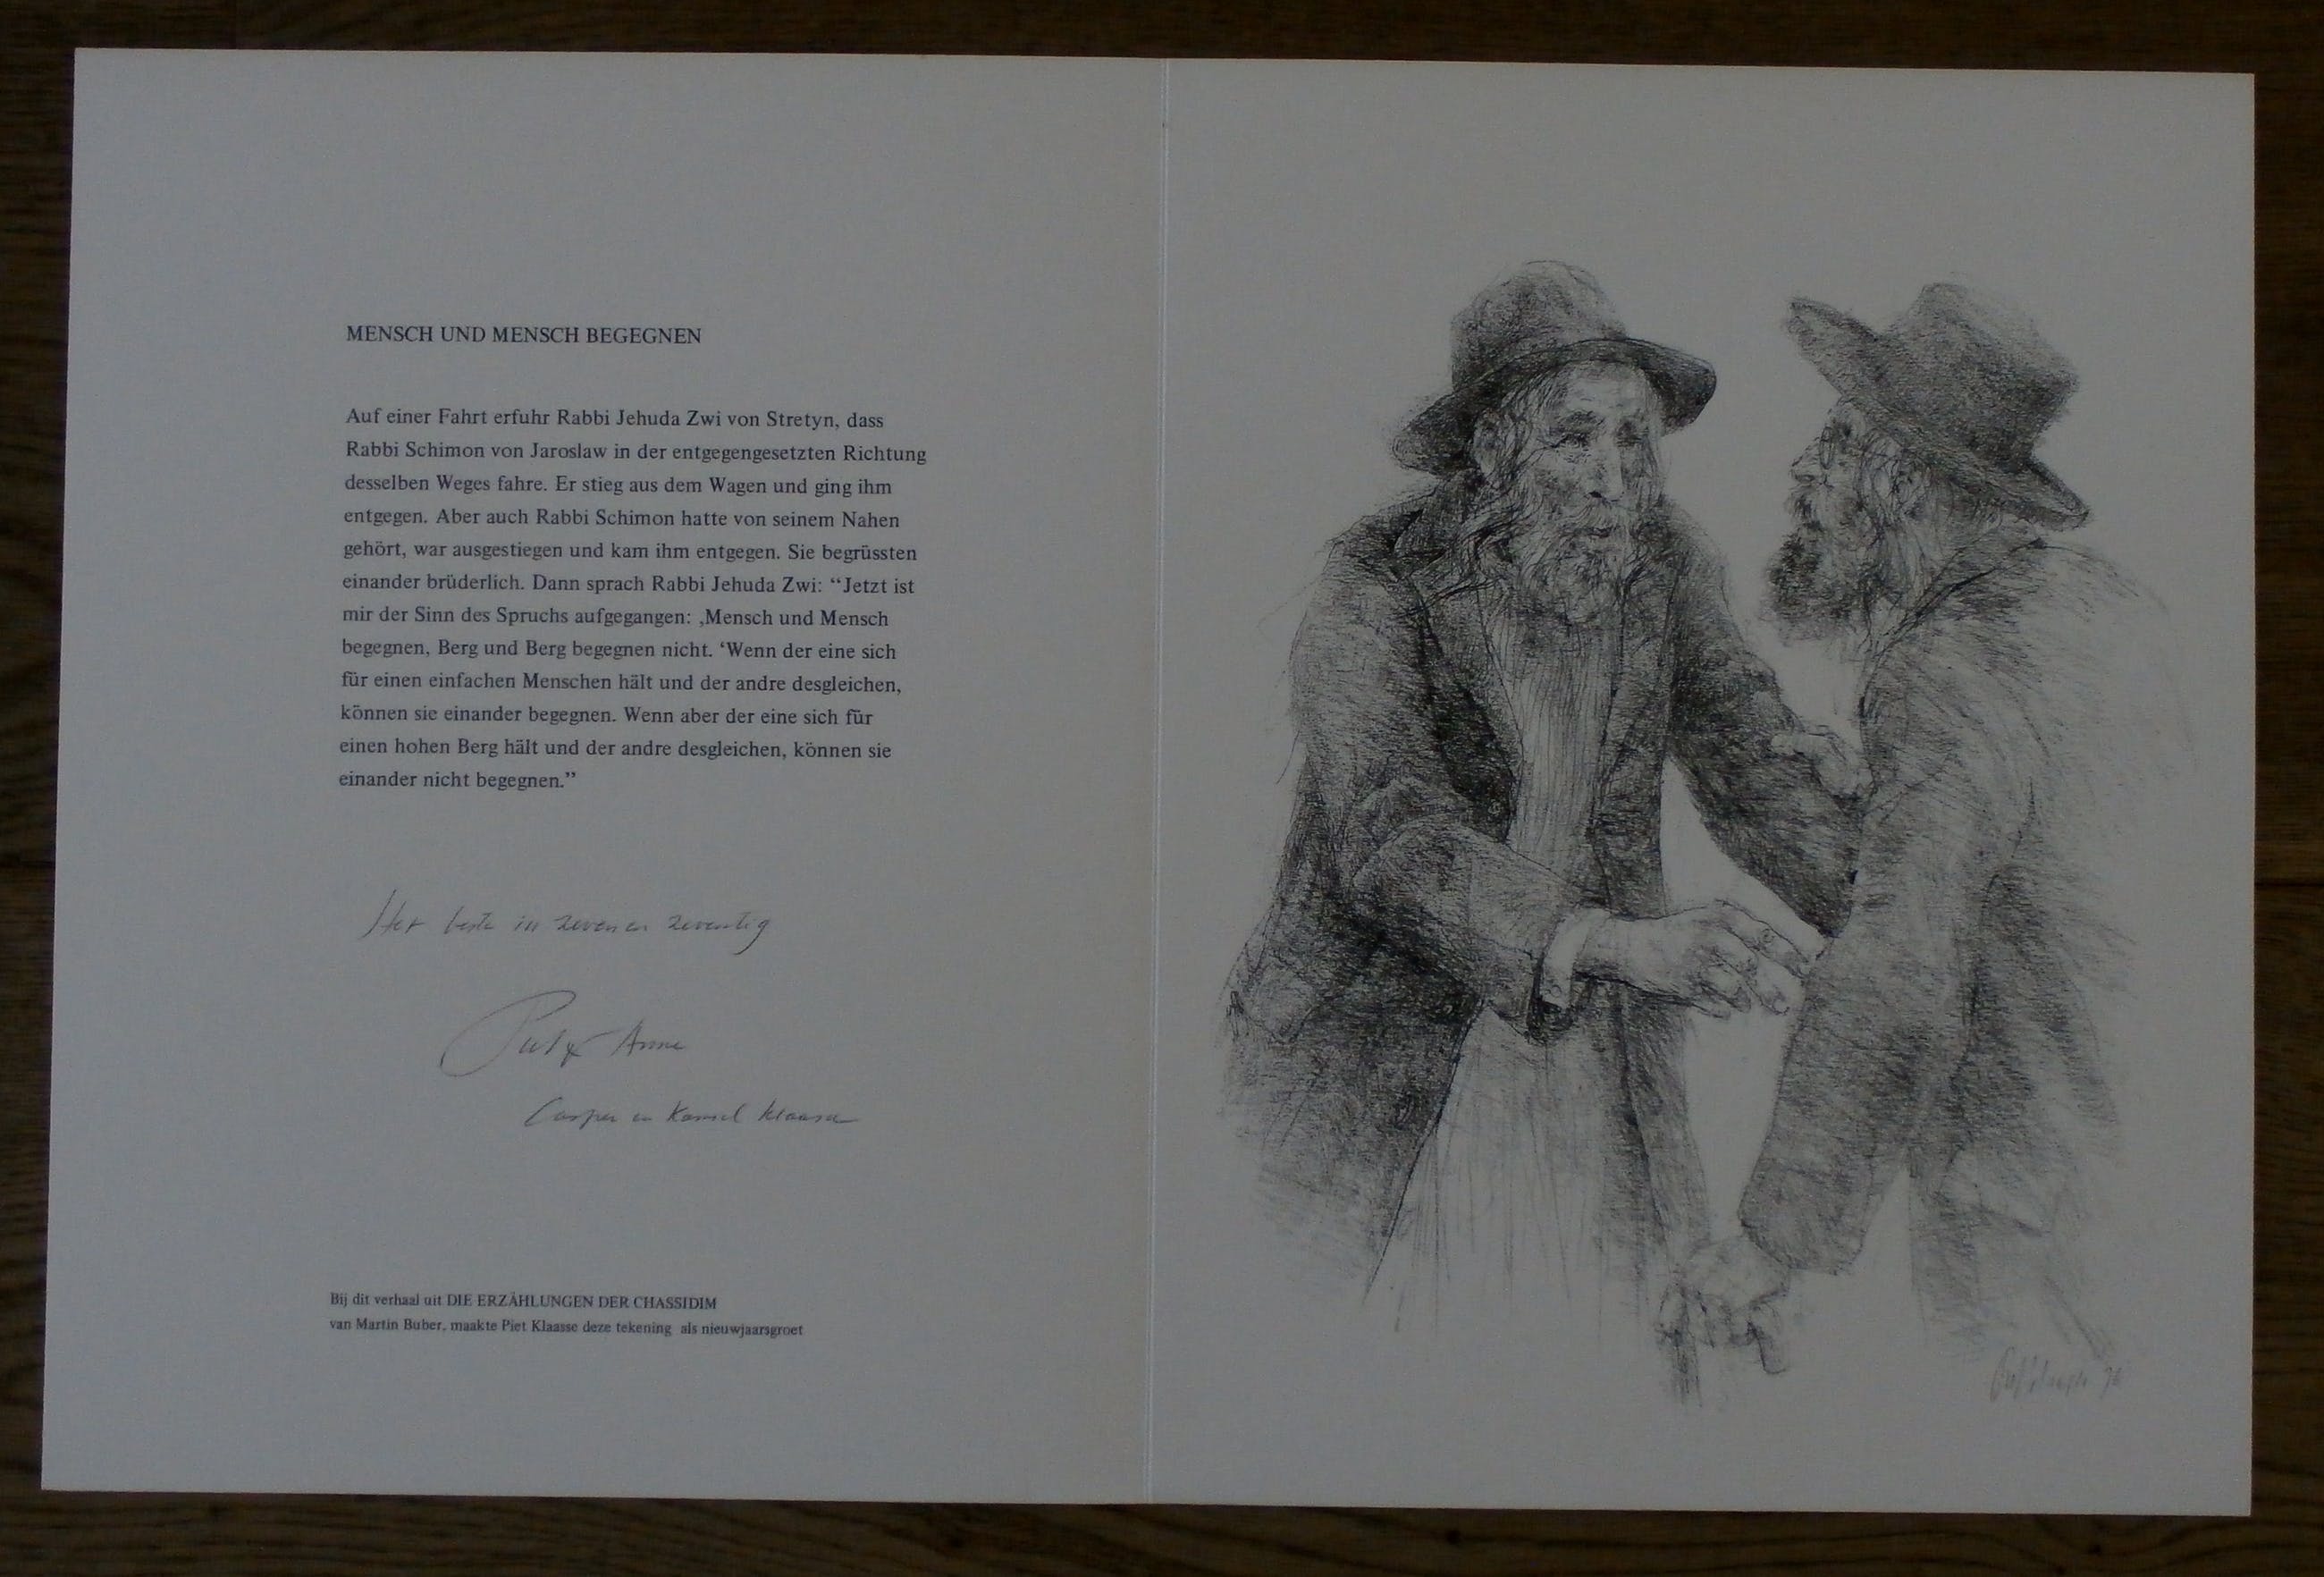 MENSCH UND MENSCH BEGEGNEN
Auf einer Fahrt erfuhr Rabbi Jehuda Zwi von Stretyn, dass
Rabbi Schimon von Jaroslaw in der entgegengesetzten Richtung
desselben Weges fahre. Er stieg aus dem Wagen und ging ihm
entgegen. Aber auch Rabbi Schimon hatte von seinem Nahen
gehört, war ausgestiegen und kam ihm entgegen. Sie begrüssten
einander brüderlich. Dann sprach Rabbi Jehuda Zwi: “Jetzt ist
mir der Sinn des Spruchs aufgegangen: ‚Mensch und Mensch
begegnen, Berg und Berg begegnen nicht. ‘Wenn der eine sich
für einen einfachen Menschen hält und der andre desgleichen,
können sie einander begegnen. Wenn aber der eine sich für
einen hohen Berg hält und der andre desgleichen, können sie
einander nicht begegnen.”
Het beste in zeven en zeventig
Piet & Anne
Casper en Klaasse
Bij dit verhaal uit DIE ERZÄHLUNGEN DER CHASSIDIM
van Martin Buber, maakte Piet Klaasse deze tekening als nieuwjaarsgroet
Piet Klaasse 76